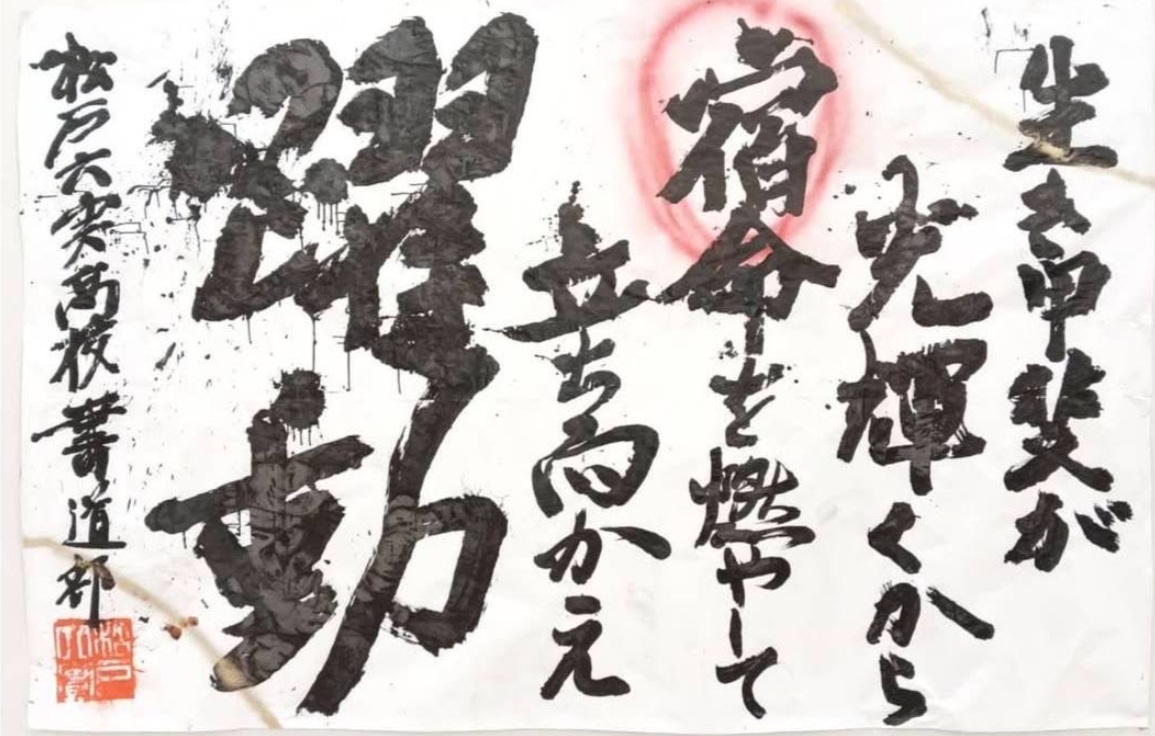 生き甲斐が
光輝くから
宿命を燃やして
立ち向かえ
躍動
松戸六実高校書道部